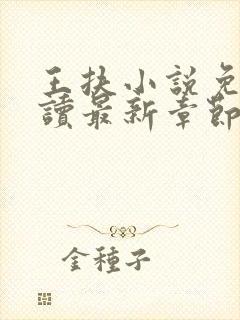 王扶小說免
讀最新章節
金種子